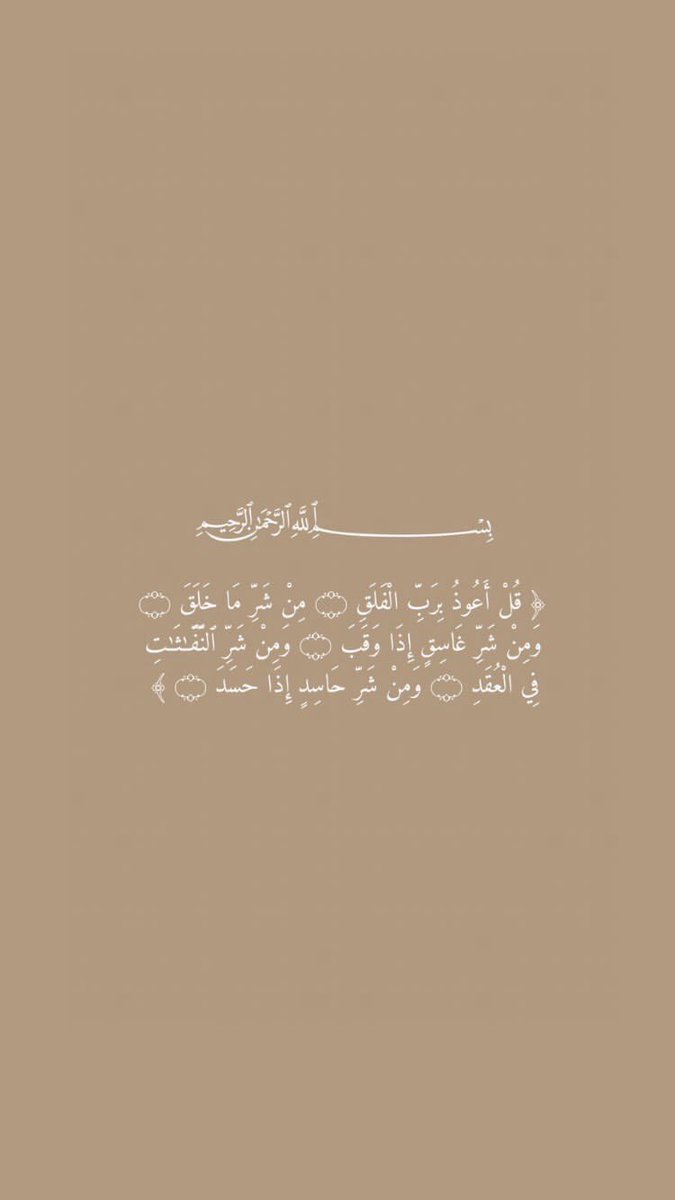 بِسْمِ ٱللَّهِ ٱلرَّحْمَٰنِ ٱلرَّحِيمِ
﴿ قُلْ أَعُوذُ بِرَبِّ الْفَلَقِ ۝ مِنْ شَرِّ مَا خَلَقَ ۝
وَمِنْ شَرِّ غَاسِقٍ إِذَا وَقَبَ ۝ وَمِنْ شَرِّ ٱلنَّفَّـٰثَـٰتِ
فِي الْعُقَدِ ۝ وَمِنْ شَرِّ حَاسِدٍ إِذَا حَسَدَ ۝ ﴾